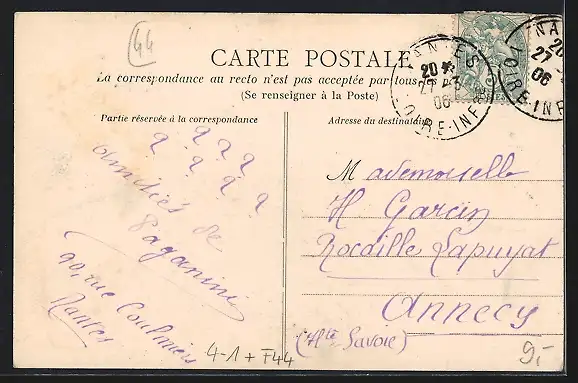 44
CARTE POSTALE
La correspondance au recto n'est pas acceptée par tous
(Se renseigner à la Poste)
NANTES
20
27 -3
06
LOIRE-INF
NA
20
27
06
LOIRE-INF
Partie réservée à la correspondance
? ? ? ?
? ? ? ?
amitiés de
Paganini
90, rue Coulmiers
Nantes
4-1 + T44
Adresse du destinataire
Mademoiselle
H Garcin
Rocaille Lapuyat
Annecy
(Hte Savoie)
9,-